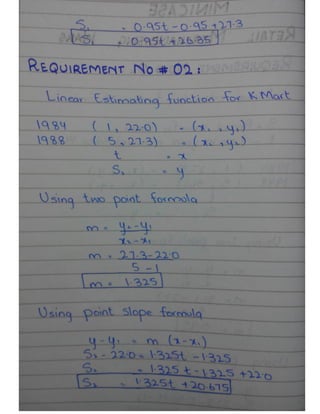 S₁ = 0.95t - 0.95 + 27.3
S₁ = 0.95t + 26.35
REQUIREMENT No # 02:
Linear Estimating function for K Mart
1984 ( 1, 22.0) = (x₁, y₁)
1988 ( 5, 27.3) = (x₂, y₂)
t = x
S₂ = y
Using two point formula
m = y₂-y₁
x₂-x₁
m = 27.3-22.0
5-1
m = 1.325
Using point slope formula
y-y₁ = m (x-x₁)
S₂-22.0 = 1.325t - 1.325
S₂ = 1.325t - 1.325 + 22.0
S₂ = 1.325t + 20.675